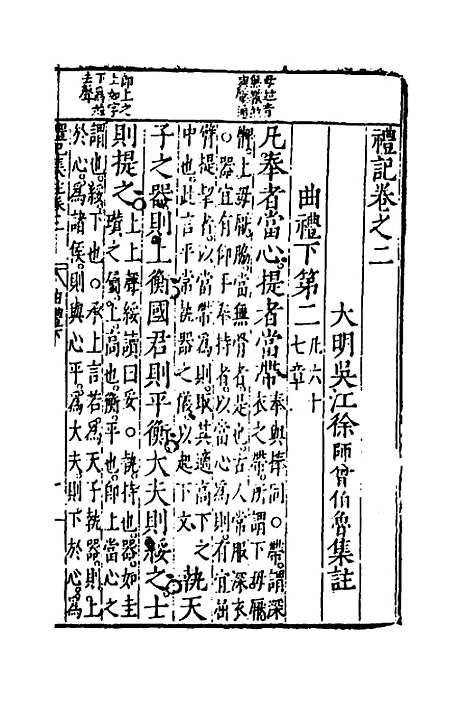 禮記卷之二
大明吳江徐師曾伯魯集註
曲禮下第二
凡六十
七章
凡奉者當心提者當帶
奉與捧同○帶謂深
衣之帶所謂下毋厭
髀上毋厭脇當無骨者是也古人常服深衣
○器宜有仰手奉持者以當心為則有宜屈
臂提挈者以當帶為則取其適高下之
中也此言平常執器之儀以起下文
執天
子之器則上衡國君則平衡大夫則綏之士
則提之
上上聲綏讀曰妥○執持也器如圭
璜之屬上高也衡平也即上當心之
謂也綏下也○承上言若為天子執器則上
於心為諸侯則與心平為大夫則下於心為
禮記集註卷之二
曲禮下
毋並音
無
即上之
上如字
下為並
去聲